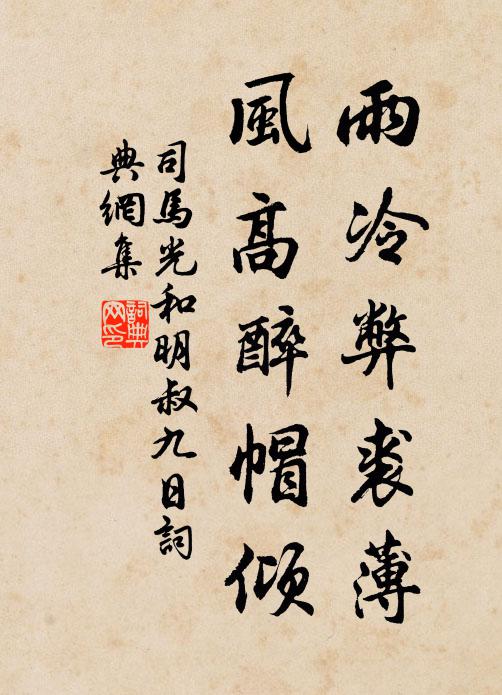 雨冷弊裘薄
風高醉帽傾
司馬光和明叔九日詞
典網集
詞典
网印